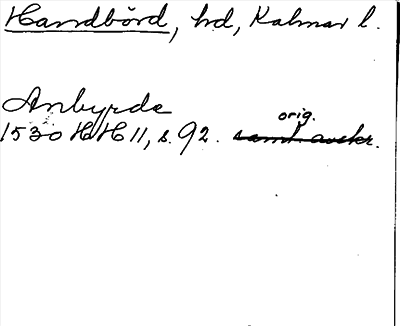 Handbörd, hd, Kalmar l.
Anbyrde
orig.
1530 HH 11, s. 92. samt avskr.